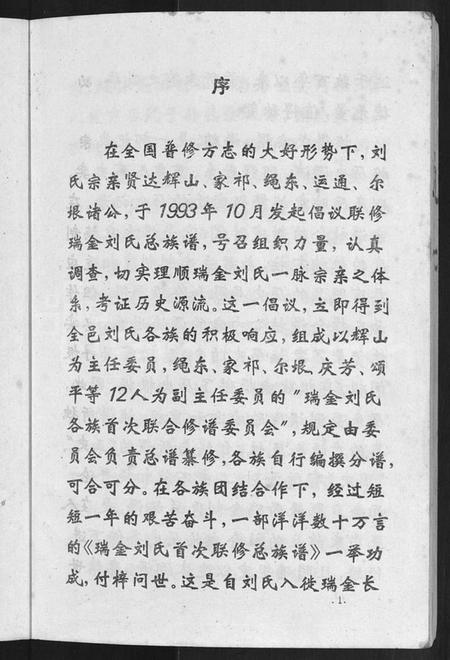 序
在全国普修方志的大好形势下，刘
氏宗亲贤达辉山、家祁、绳东、运通、尔
垠诸公，于1993年10月发起倡议联修
瑞金刘氏总族谱，号召组织力量，认真
调查，切实理顺瑞金刘氏一脉宗亲之体
系，考证历史源流。这一倡议，立即得到
全邑刘氏各族的积极响应，组成以辉山
为主任委员，绳东、家祁、尔垠、庆芳、颂
平等12人为副主任委员的"瑞金刘氏
各族首次联合修谱委员会"，规定由委
员会负责总谱纂修，各族自行编撰分谱，
可合可分。在各族团结合作下，经过短
短一年的艰苦奋斗，一部洋洋数十万言
的《瑞金刘氏首次联修总族谱》一举功
成，付梓问世。这是自刘氏入徙瑞金长
.1.